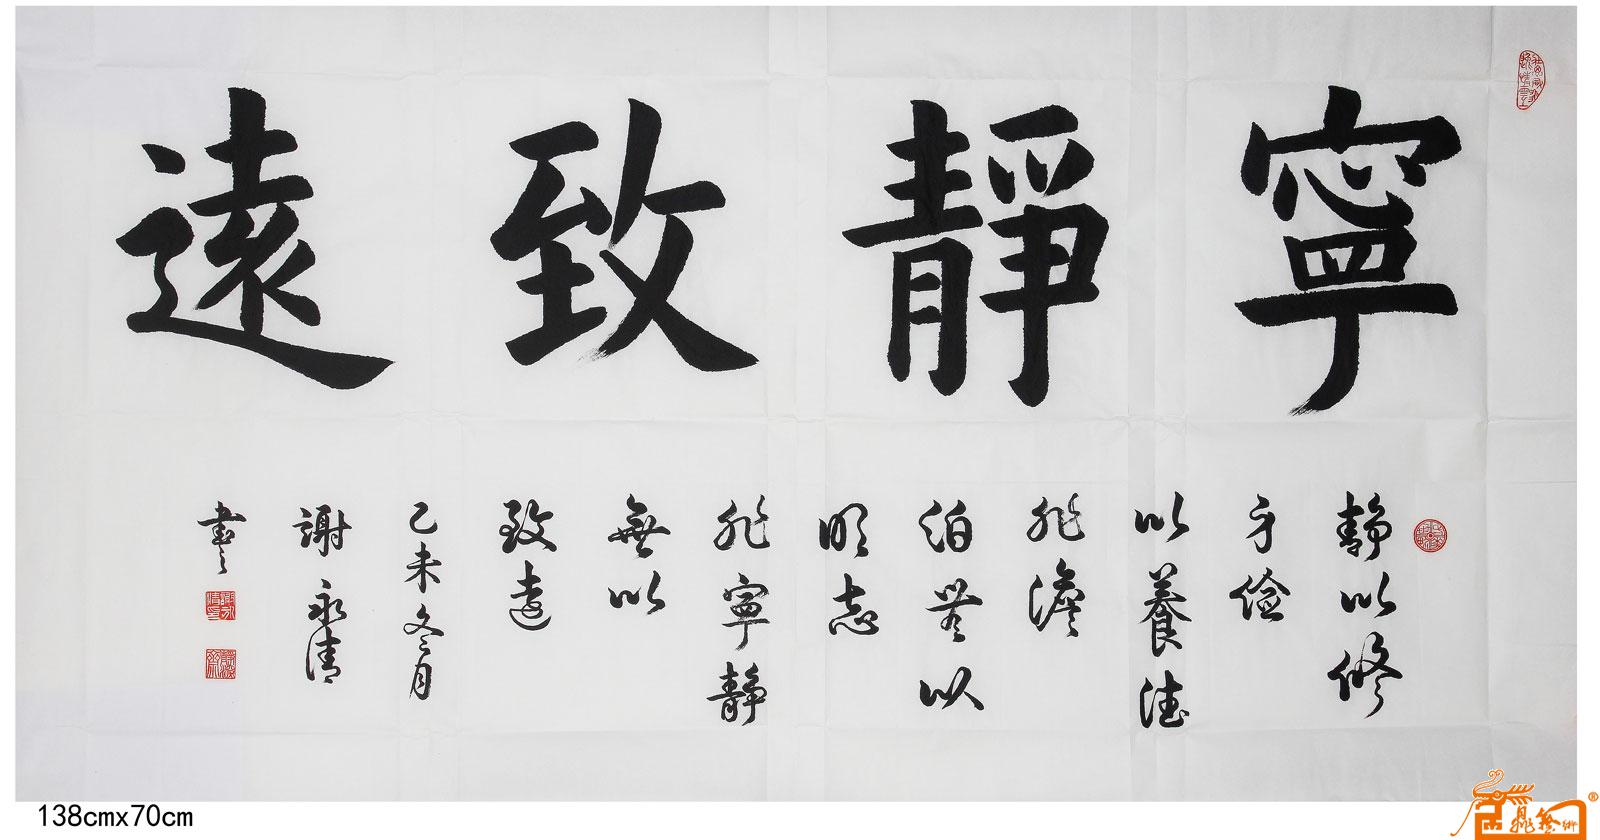 寧靜致遠
静以修
身儉
以養德
非澹
泊無以
明志
非寧静
無以
致遠
乙未冬月
謝永清
書
138cmx70cm